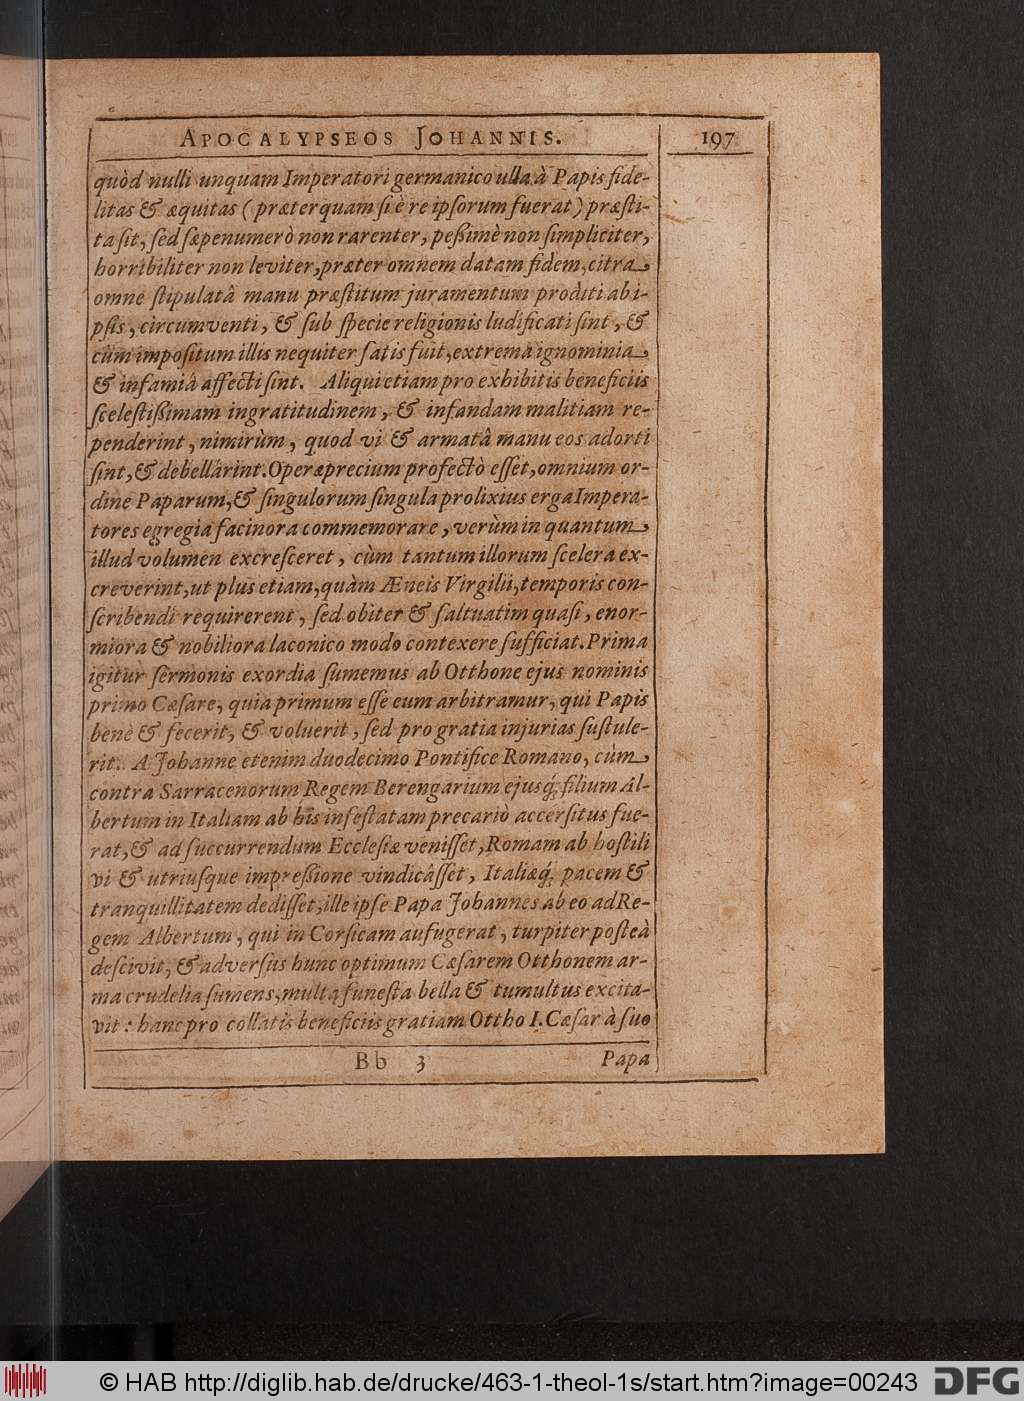 APOCALYPSEOS JOHANNIS. 197
quòd nulli unquam Imperatori germanico ulla à Papis fide-
litas & æquitas (præterquam si è re ipsorum fuerat) præsti-
ta sit, sed sæpenumerò non rarenter, peßimè non simpliciter,
horribiliter non leviter, præter omnem datam fidem, citra
omne stipulatâ manu præstitum juramentum proditi ab i-
psis, circumventi, & sub specie religionis ludificati sint, &
cùm impositum illis nequiter satis fuit, extrema ignominia
& infamiâ affecti sint. Aliqui etiam pro exhibitis beneficiis
scelestißimam ingratitudinem, & infandam malitiam re-
penderint, nimirùm, quod vi & armatâ manu eos adorti
sint, & debellârint. Operæprecium profectò esset, omnium or-
dine Paparum, & singulorum singula prolixius erga Impera-
tores egregia facinora commemorare, verùm in quantum
illud volumen excresceret, cùm tantum illorum scelera ex-
creverint, ut plus etiam, quàm Æneis Virgilii, temporis con-
scribendi requirerent, sed obiter & saltuatim quasi, enor-
miora & nobiliora laconico modo contexere sufficiat. Prima
igitur sermonis exordia sumemus ab Otthone ejus nominis
primo Cæsare, quia primum esse eum arbitramur, qui Papis
bene & fecerit, & voluerit, sed pro gratia injurias sustule-
rit. A Johanne etenim duodecimo Pontifice Romano, cùm
contra Sarracenorum Regem Berengarium ejusq́; filium Al-
bertum in Italiam ab his infestatam precariò accersitus fue-
rat, & ad succurrendum Ecclesiæ venisset, Romam ab hostili
vi & utriusque impreßione vindicâsset, Italiæq́; pacem &
tranquillitatem dedisset, ille ipse Papa Johannes ab eo ad Re-
gem Albertum, qui in Corsicam aufugerat, turpiter posteà
descivit, & adversus hunc optimum Cæsarem Otthonem ar-
ma crudelia sumens, multa funesta bella & tumultus excita-
vit: hanc pro collatis beneficiis gratiam Ottho I. Cæsar à suo
Bb 3 Papa
© HAB http://diglib.hab.de/drucke/463-1-theol-1s/start.htm?image=00243 DFG